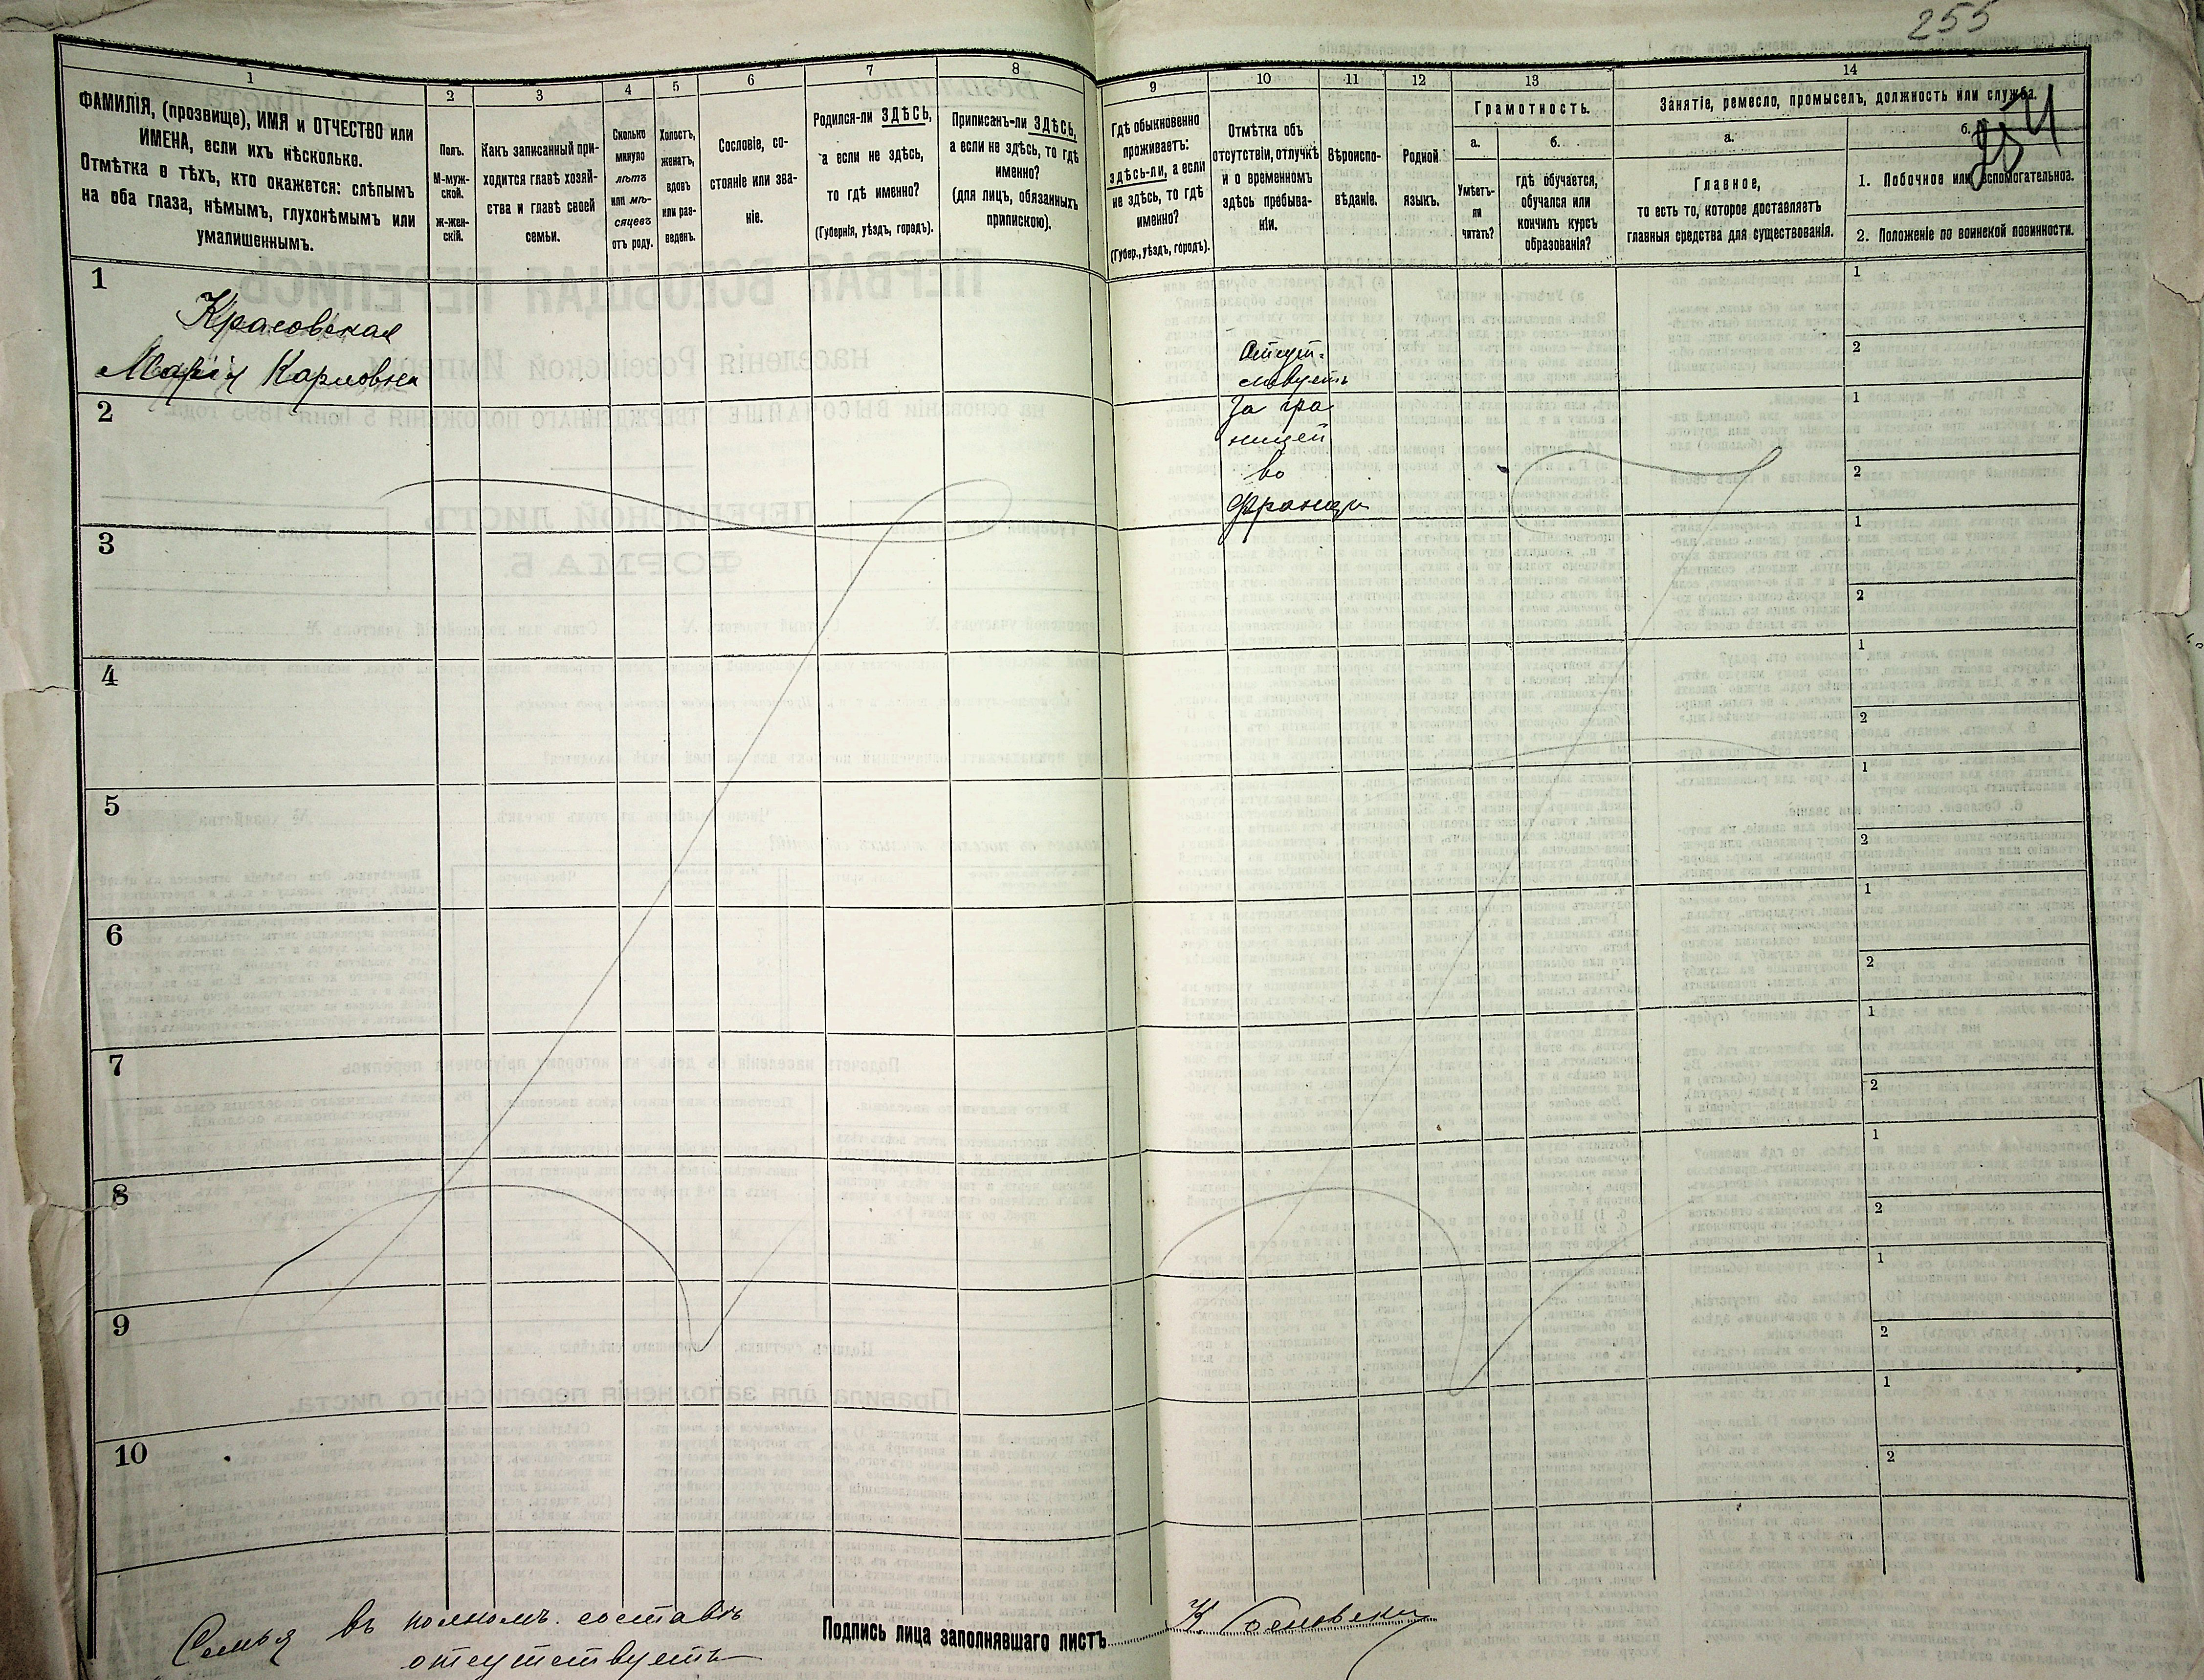 255
1
ФАМИЛІЯ, (прозвище), ИМЯ и ОТЧЕСТВО или
ИМЕНА, если ихъ нѣсколько.
Отмѣтка о тѣхъ, кто окажется: слѣпымъ
на оба глаза, нѣмымъ, глухонѣмымъ или
умалишеннымъ.
2
Полъ.
М-муж-
ской.
ж-жен-
скій.
3
Какъ записанный при-
ходится главѣ хозяй-
ства и главѣ своей
семьи.
4
Сколько
минуло
лѣтъ
или мѣ-
сяцевъ
отъ роду.
5
Холостъ,
женатъ,
вдовъ
или раз-
веденъ.
6
Сословіе, со-
стояніе или зва-
ніе.
7
Родился-ли ЗДѢСЬ,
а если не здѣсь,
то гдѣ именно?
(Губернія, уѣздъ, городъ).
8
Приписанъ-ли ЗДѢСЬ,
а если не здѣсь, то гдѣ
именно?
(для лицъ, обязанныхъ
припискою).
9
Гдѣ обыкновенно
проживаетъ:
здѣсь-ли, а если
не здѣсь, то гдѣ
именно?
(Губер., уѣздъ, городъ).
10
Отмѣтка объ
отсутствіи, отлучкѣ
и о временномъ
здѣсь пребыва-
ніи.
11
Вѣроиспо-
вѣданіе.
12
Родной
языкъ.
13
Грамотность.
а.
Умѣетъ-
ли
читать?
б.
гдѣ обучается,
обучался или
кончилъ курсъ
образованія?
14
Занятіе, ремесло, промыселъ, должность или служба.
а.
Главное,
то есть то, которое доставляетъ
главныя средства для существованія.
б.
1. Побочное или вспомогательное.
2. Положеніе по воинской повинности.
1
Красовская
Марія Карловна
Отсут-
ствуетъ
За гра
ницей
во
Франціи
1
2
2
1
2
3
1
2
4
1
2
5
1
2
6
1
2
7
1
2
8
1
2
9
1
2
10
1
2
Семья въ полномъ составѣ
отсутствуетъ
Подпись лица заполнявшаго листъ